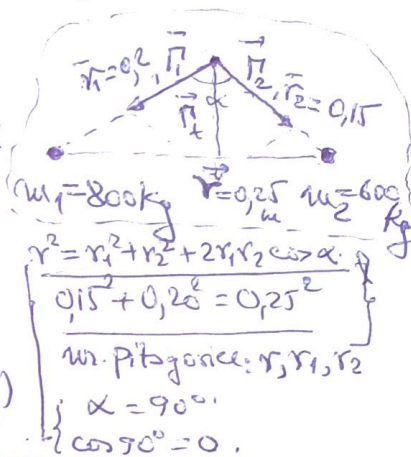 r̄₁=0,2, Γ⃗₁ Γ⃗₂, r̄₂=0,15
α
Γ⃗t
m₁=800kg r⃗=0,25 m m₂=600 kg
r²=r₁²+r₂²+2r₁r₂cosα.
0,15²+0,20²=0,25²
nr. pitagorice: r, r₁, r₂
) α=90°.
cos90°=0.